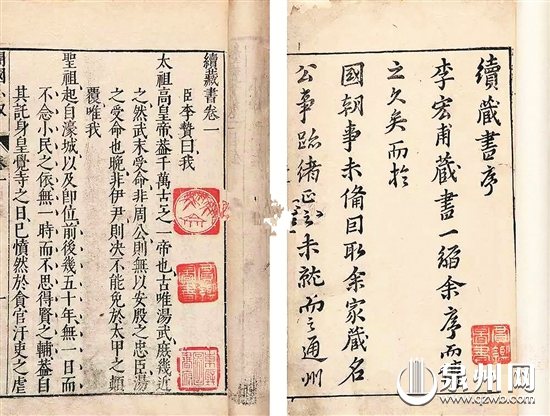 續藏書序
李宏甫藏書一編余序而傳
之久矣而於
國朝事未備因取余家藏名
公事跡緒正之未就而之通州
續藏書卷一
臣李贄曰我
太祖高皇帝蓋千萬古之一帝也古唯湯武庶幾近
之然武未受命非周公則無以安殷之忠臣湯
之受命也晚非伊尹則決不能免於太甲之顛
覆唯我
聖祖起自濠城以及即位前後幾五十年無一日而
不念小民之依無一時而不思得賢之輔蓋自
其託身皇覺寺之日已憤然於貪官汙吏之虐
泉州网
www.qzwb.com